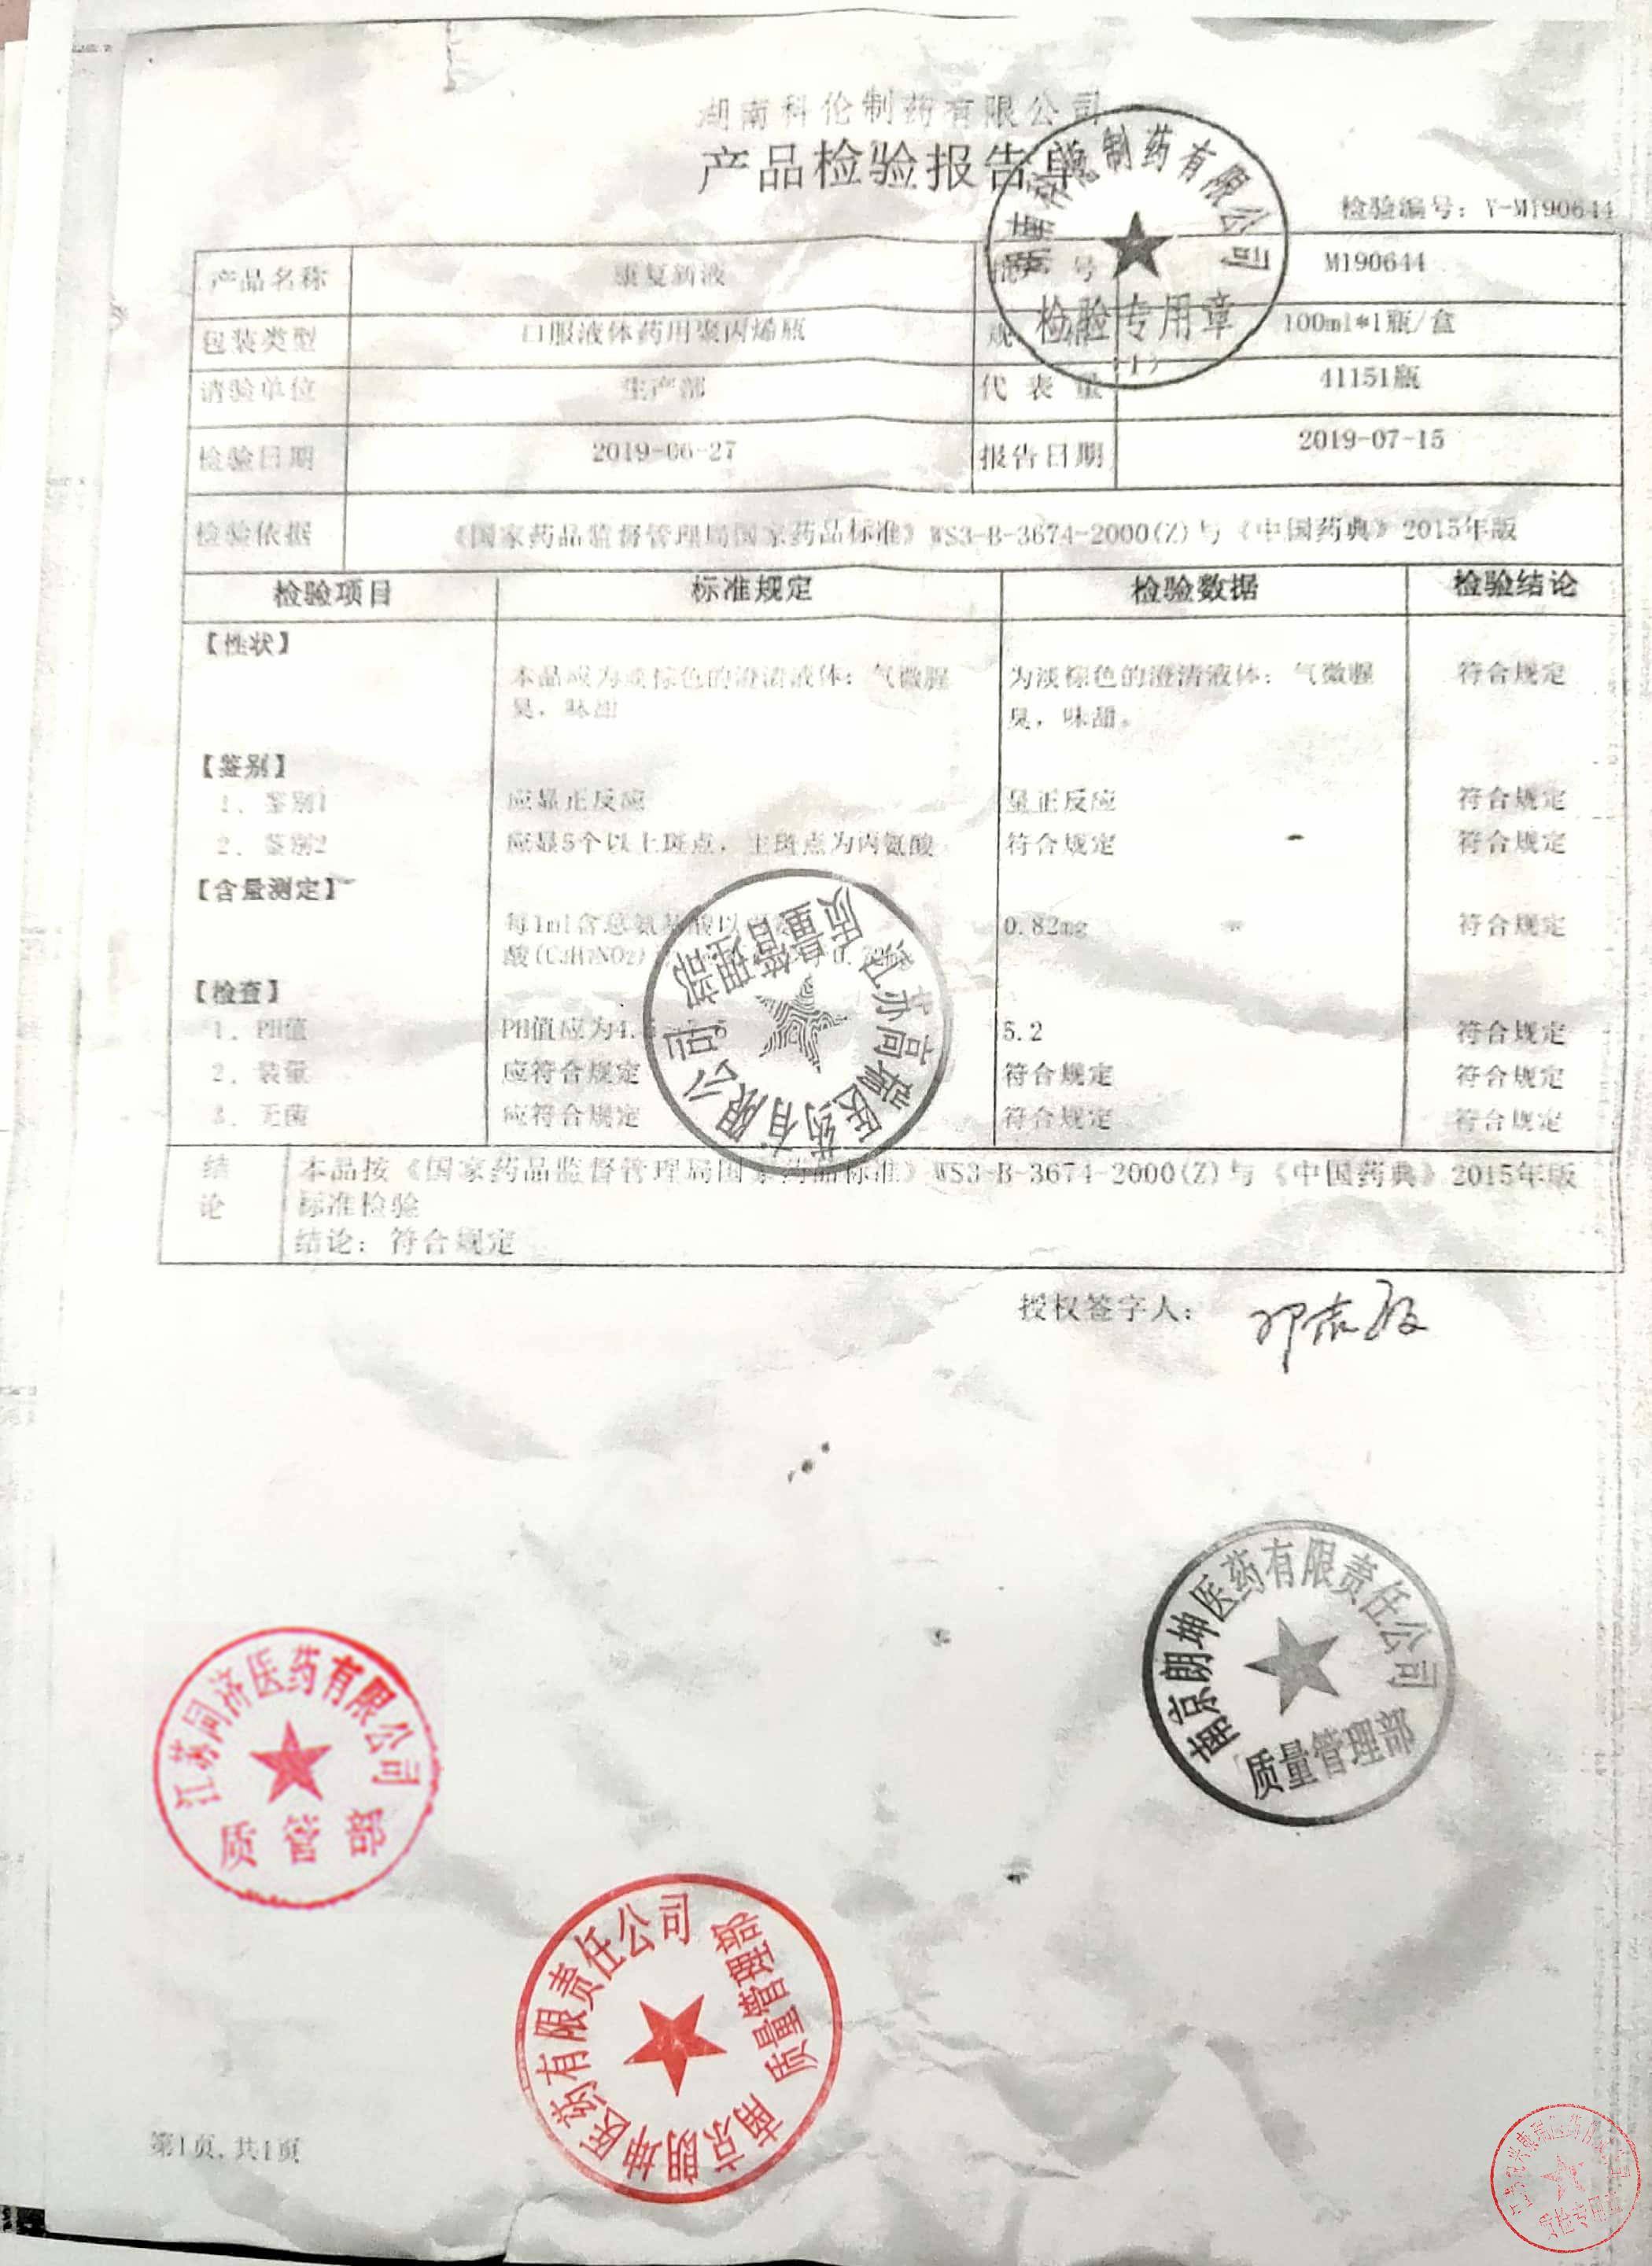 湖南科伦制药有限公司
产品检验报告单
检验编号：Y-M190644
产品名称 康复新液 批 号 M190644
包装类型 口服液体药用聚丙烯瓶 规 100ml*1瓶/盒
请验单位 生产部 代 表 量 41151瓶
检验日期 2019-06-27 报告日期 2019-07-15
检验依据 《国家药品监督管理局国家药品标准》WS3-B-3674-2000(Z)与《中国药典》2015年版
检验项目 标准规定 检验数据 检验结论
【性状】
本品应为淡棕色的澄清液体；气微腥 为淡棕色的澄清液体；气微腥 符合规定
臭，味甜 臭，味甜。
【鉴别】
1、鉴别1 应显正反应 显正反应 符合规定
2、鉴别2 应显5个以上斑点，主斑点为丙氨酸 符合规定 符合规定
【含量测定】
每1ml含总氨基酸以 0.82mg 符合规定
酸(C3H7NO2)
【检查】
1、PH值 PH值应为4. 5.2 符合规定
2、装量 应符合规定 符合规定 符合规定
3、无菌 应符合规定 符合规定 符合规定
结论 本品按《国家药品监督管理局国家药品标准》WS3-B-3674-2000(Z)与《中国药典》2015年版
标准检验
结论：符合规定
授权签字人：
湖南科伦制药有限公司
检验专用章
(1)
医药有限公司
质量管理部
南京朗坤医药有限责任公司
质量管理部
江苏同济医药有限公司
质管部
南京朗坤医药有限责任公司
质量管理部
第1页,共1页
质检专用章